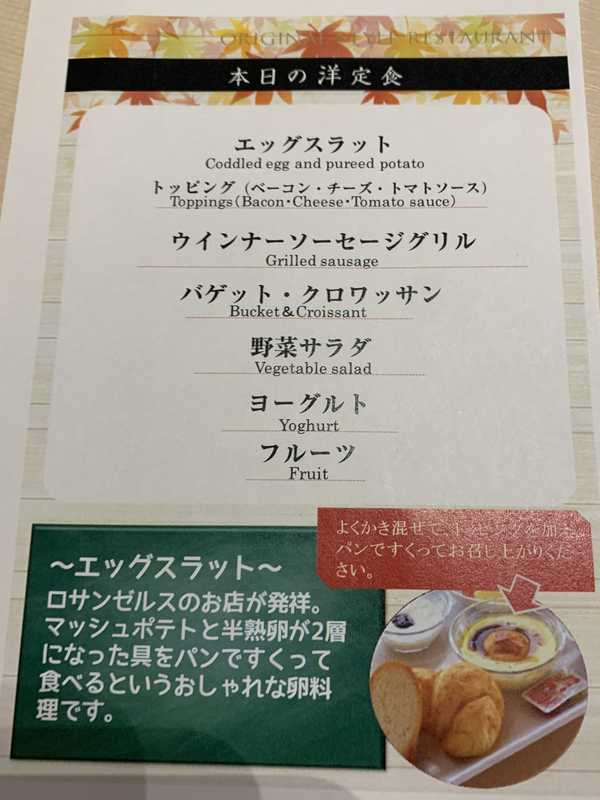 ORIGINAL STYLE RESTAURANT
本日の洋定食
エッグスラット
Coddled egg and pureed potato
トッピング（ベーコン・チーズ・トマトソース）
Toppings（Bacon・Cheese・Tomato sauce）
ウインナーソーセージグリル
Grilled sausage
バゲット・クロワッサン
Bucket＆Croissant
野菜サラダ
Vegetable salad
ヨーグルト
Yoghurt
フルーツ
Fruit
よくかき混ぜて、トッピングを加え、
パンですくってお召し上がりくだ
さい。
～エッグスラット～
ロサンゼルスのお店が発祥。
マッシュポテトと半熟卵が2層
になった具をパンですくって
食べるというおしゃれな卵料
理です。